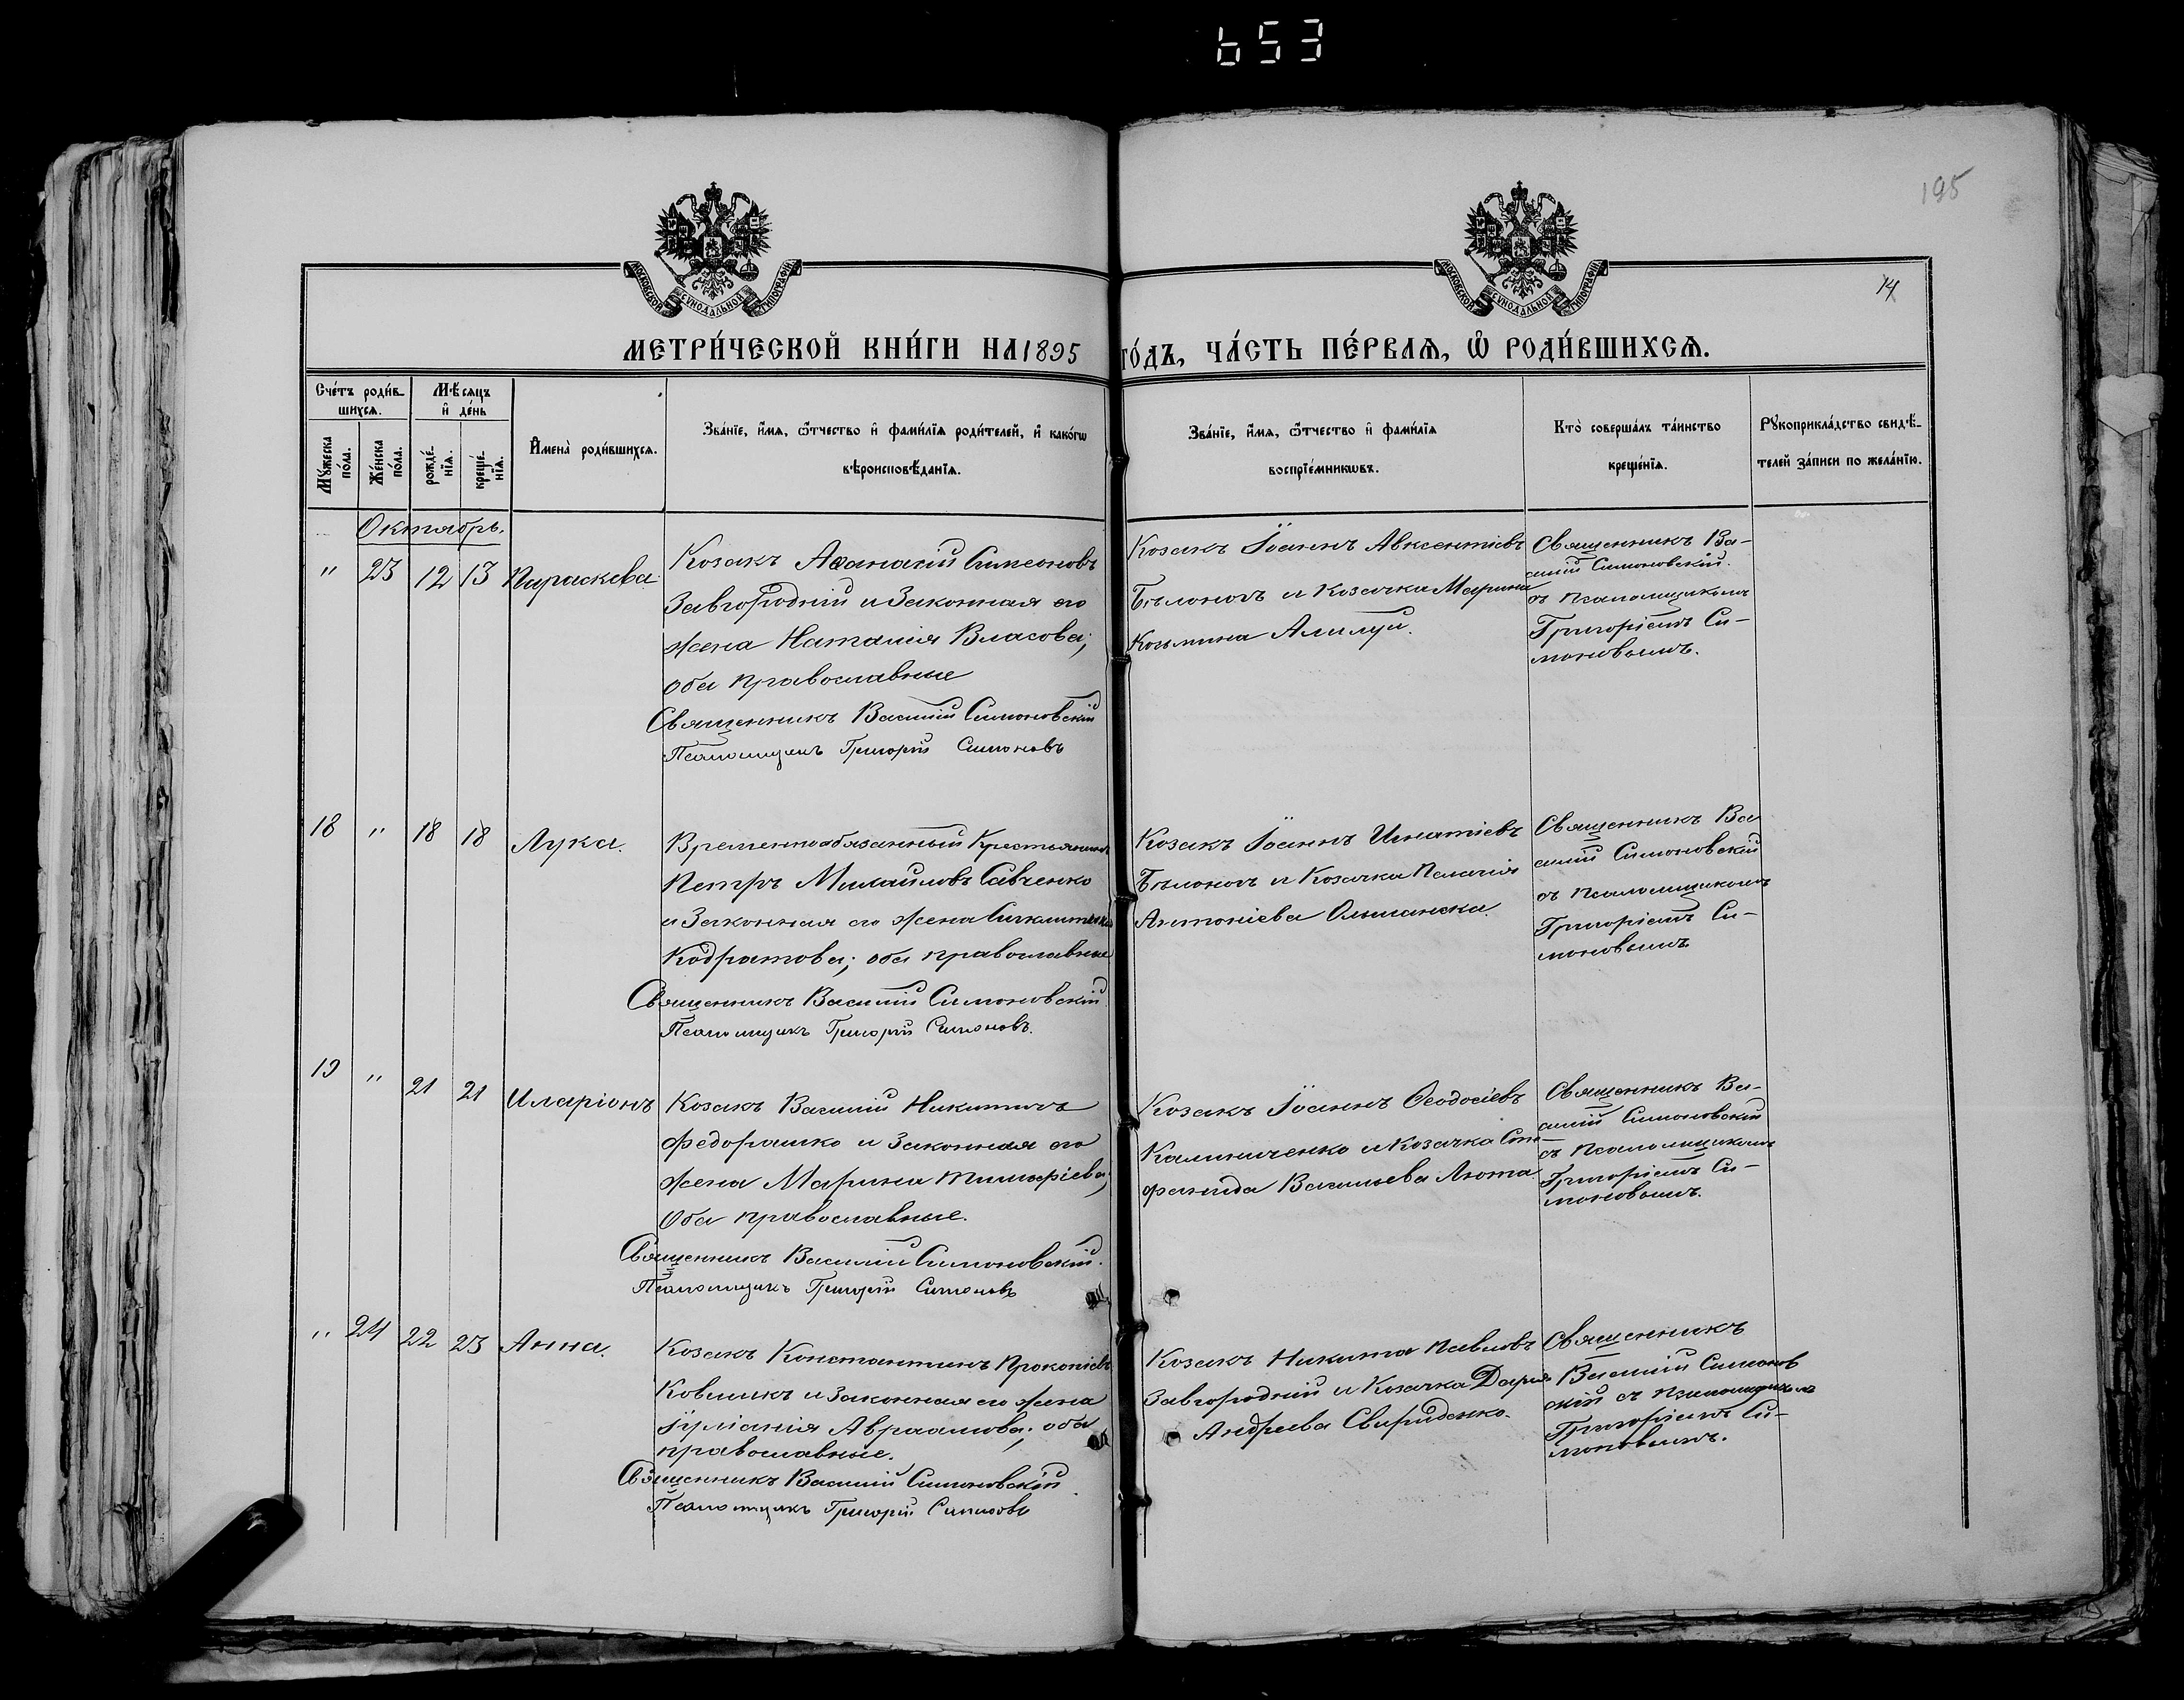 653
195
14
МОСКОВСКОЙ СѴНОДАЛЬНОЙ ТИПОГРАФІИ
МОСКОВСКОЙ СѴНОДАЛЬНОЙ ТИПОГРАФІИ
МЕТРИ́ЧЕСКОЙ КНИ́ГИ НА 1895 ГО́ДЪ, ЧА́СТЬ ПЕ́РВАЯ, Ѡ РОДИ́ВШИХСЯ.
Сче́тъ роди́в-
шихся.
Мꙋжеска по́ла.
Же́нска по́ла.
Мѣ́сяцъ
и҆ де́нь
рожде́-нїя.
креще́-нїя.
И҆мена̀ роди́вшихся.
Зва́нїе, и҆́мя, ѻ҆́тчество и҆ фами́лїя роди́телей, и҆ како́гѡ
вѣроисповѣ́данїя.
Зва́нїе, и҆́мя, ѻ҆́тчество и҆ фами́лїя
воспрїе́мникѡвъ.
Кто̀ соверша́лъ та́инство
креще́нїя.
Рꙋкоприкла́дство свидѣ́-
телей за́писи по жела́нїю.
Октябрь.
" 23 12 13 Параскева
Козакъ Аѳанасій Симеоновъ
Завгородній и Законная его
жена Наталія Власова;
оба православные
Священникъ Василій Симоновскій
Псаломщикъ Григорій Симоновъ
Козакъ Іоаннъ Авксентіевъ
Бѣлоногъ и Козачка Марина
Козьмина
Священникъ Ва-
силій Симоновскій
съ псаломщикомъ
Григоріемъ Си-
моновымъ.
18 " 18 18 Лука.
Временнообязанный Крестьянинъ
Петръ Михаиловъ Савченко
и Законная его жена
Кодратова; оба православные
Священникъ Василій Симоновскій
Псаломщикъ Григорій Симоновъ.
Козакъ Іоаннъ Игнатіевъ
Бѣлоногъ и Козачка Пелагія
Антоніева Ольшанска.
Священникъ Ва
силій Симоновскій
съ псаломщикомъ
Григоріемъ Си-
моновымъ
19 " 21 21 Иларіонъ
Козакъ Василій Никитичъ
Федорашко и Законная его
жена Марина
Оба православные.
Священникъ Василій Симоновскій.
Псаломщикъ Григорій Симоновъ
Козакъ Іоаннъ Ѳеодосіевъ
Калиниченко и Козачка Сте-
фанида Васильева Люта
Священникъ Ва-
силій Симоновскій
съ псаломщикомъ
Григоріемъ Си-
моновымъ.
" 24 22 23 Анна.
Козакъ Константинъ Прокопіевъ
и Законная его жена
Іуліанія Авраамова; оба
православные.
Священникъ Василій Симоновскій
Псаломщикъ Григорій Симоновъ
Козакъ Никита Павловъ
Завгородній и Козачка Дарія
Андреева Свириденко.
Священникъ
Василій Симонов
скій съ псаломщикомъ
Григоріемъ Си-
моновымъ.